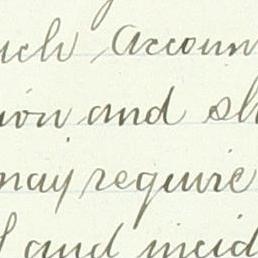 such Accoun
ion and sh
may require
and incid